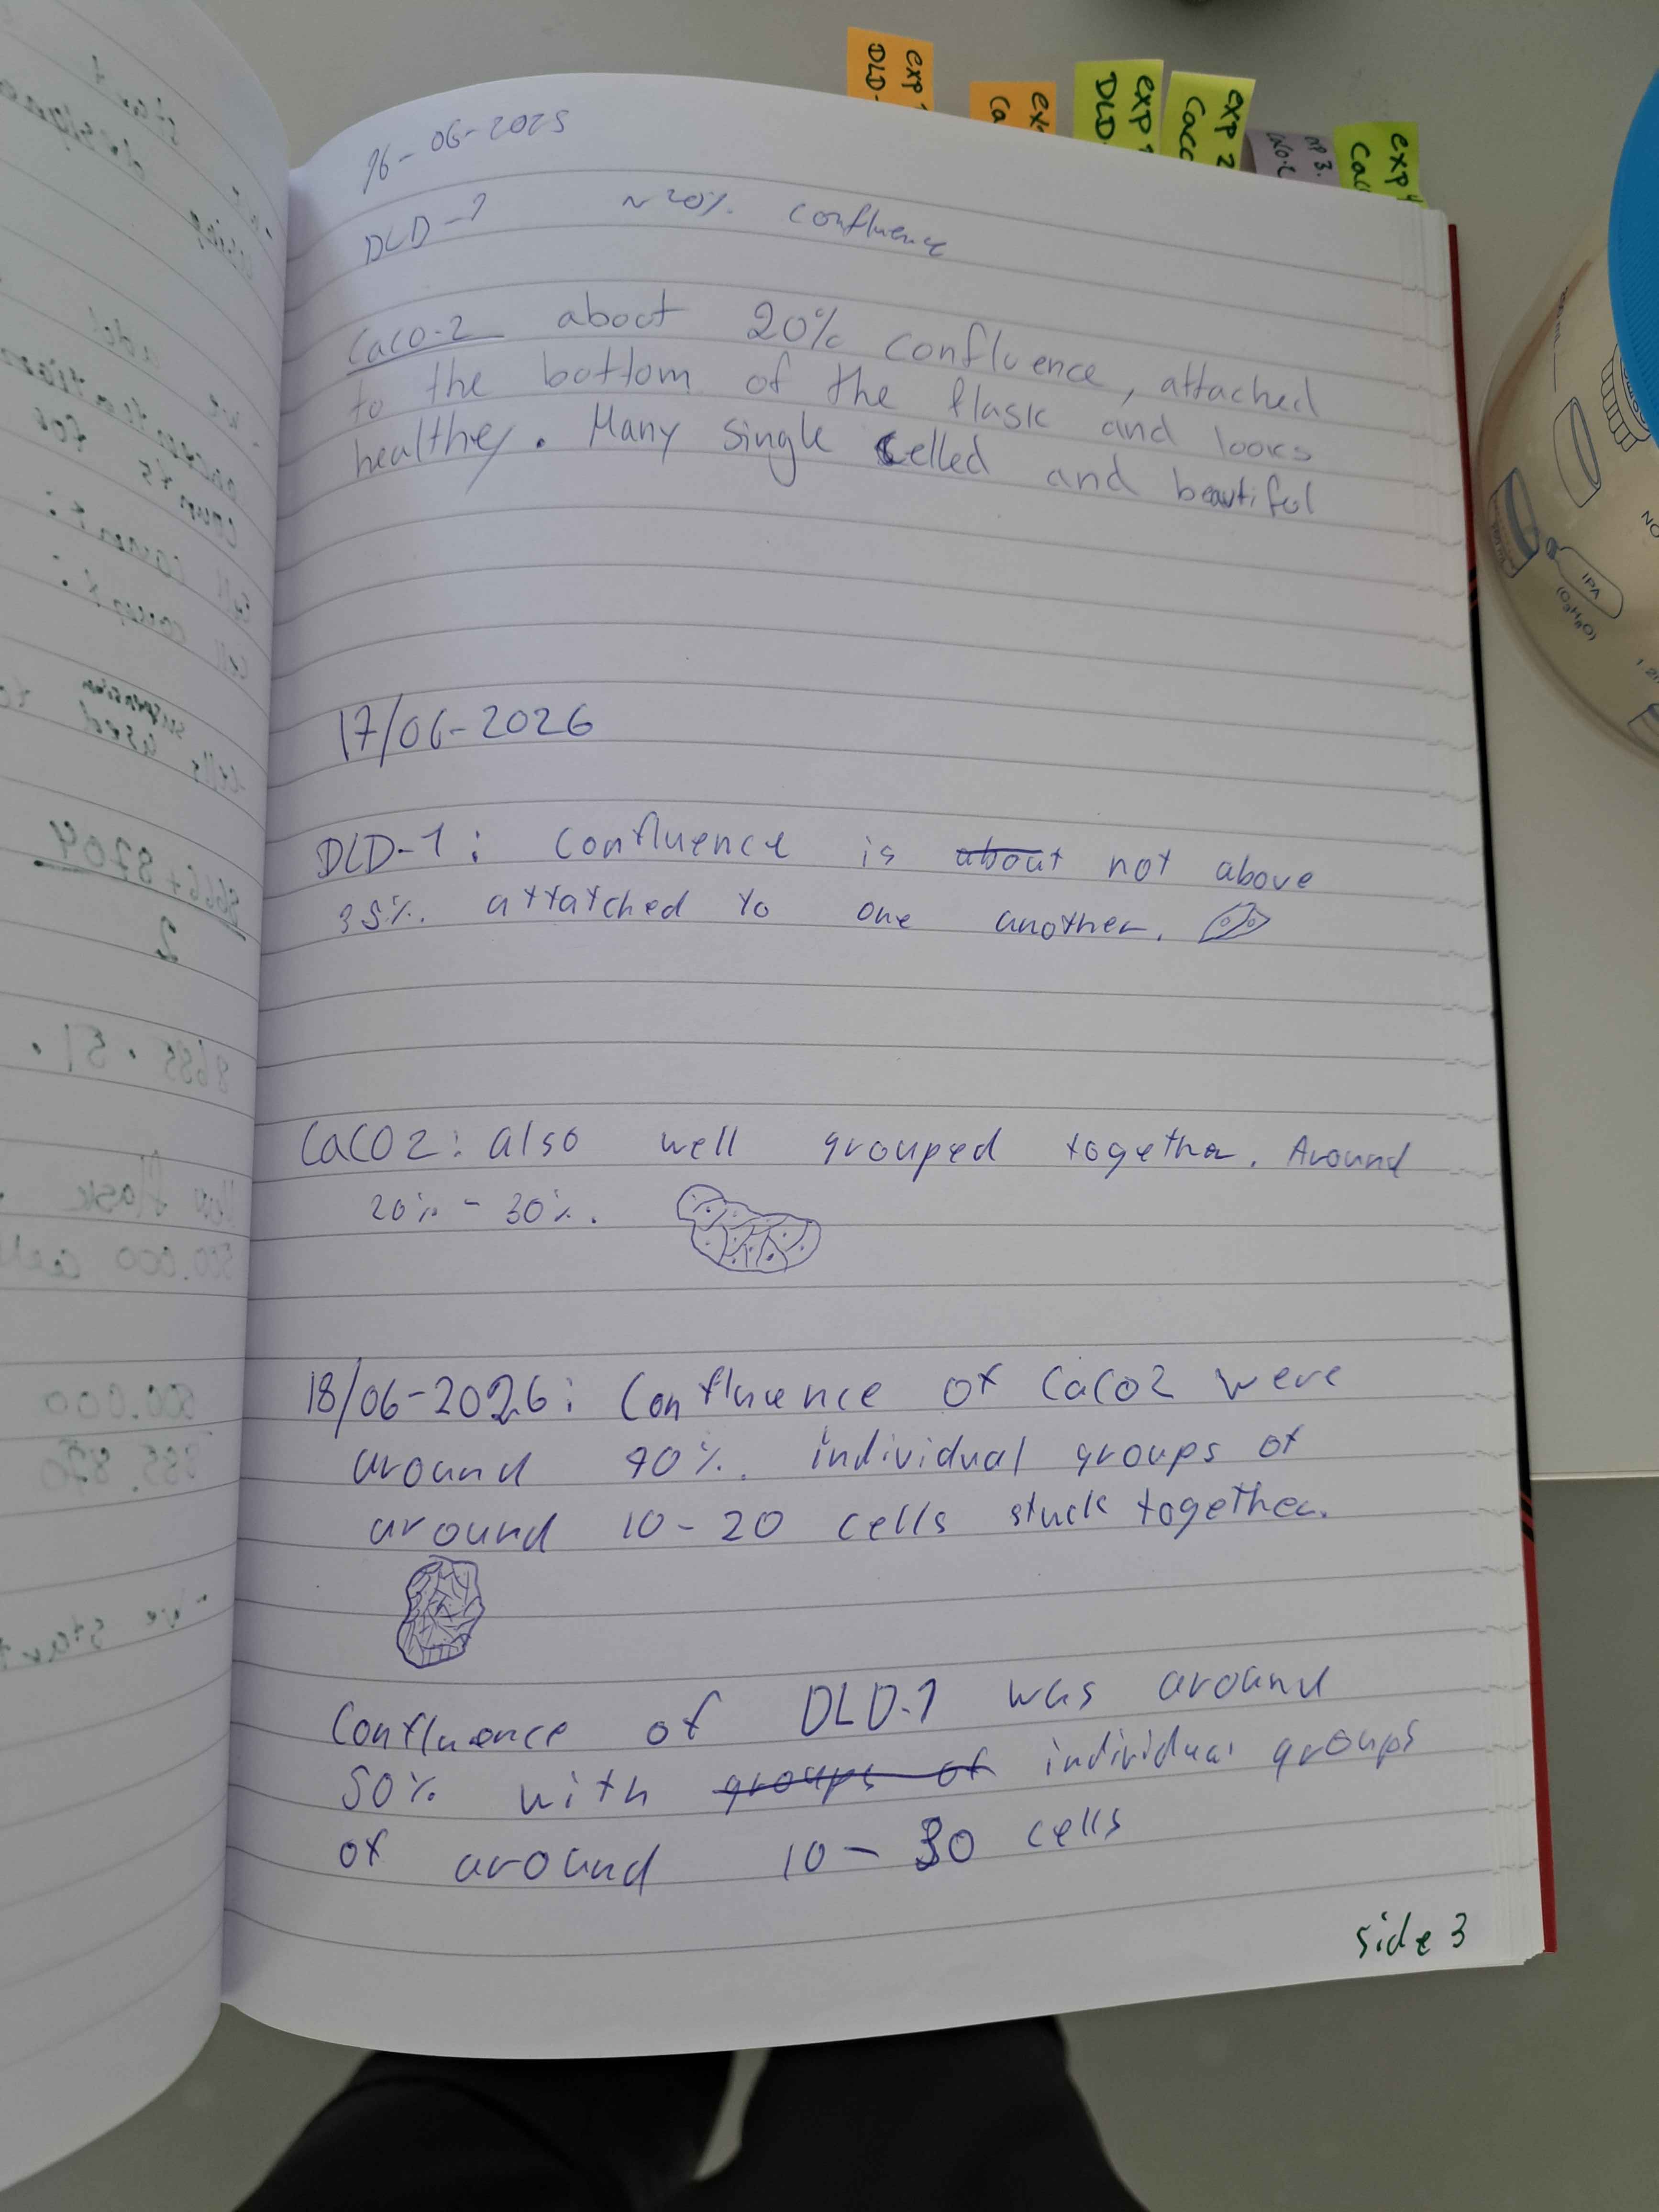 16-06-2025
DLD-1 ~20% confluence
Caco-2 about 20% confluence, attached
to the bottom of the flask and looks
healthey. Many single celled and beautiful
17/06-2026
DLD-1: Confluence is about not above
35%. attatched to one another.
CaCO2: also well grouped together. Around
20% - 30%.
18/06-2026: Confluence of CaCo2 were
around 40%. individual groups of
around 10-20 cells stuck together.
Confluence of DLD-1 was around
50% with groups of individual groups
of around 10-30 cells
side 3
exp
DLD-
Ca
exp
DLD
exp 2
Cacc
exp 4
Cac
IPA
(C3H8O)